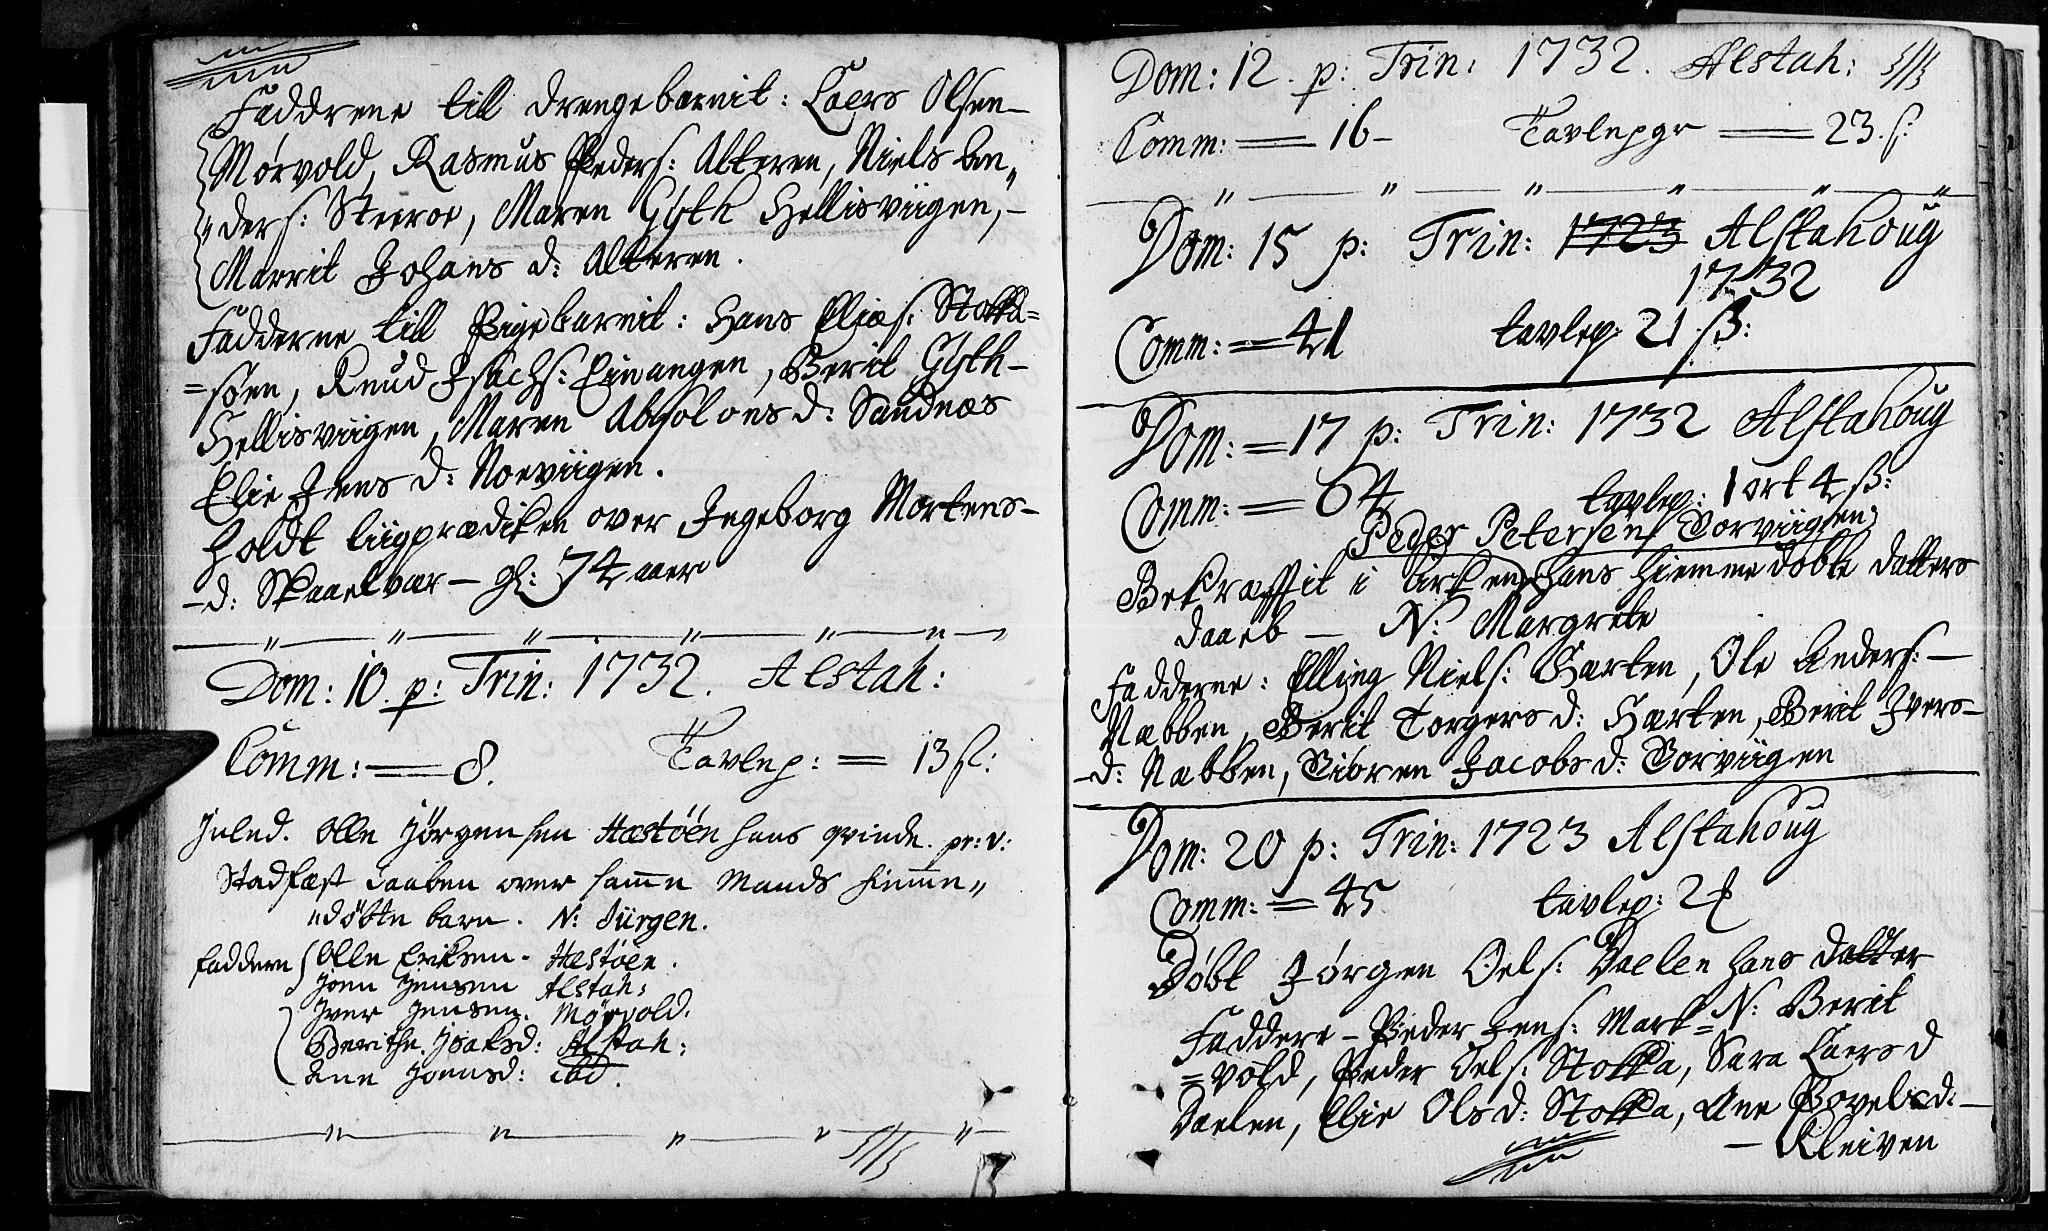 Faddrene till drengebarnit: Laers Olsen
Mørvold, Rasmus Peders: Alteren, Niels An„
„ders: Steeroe, Maren Gisth Hellisviigen,
Marrit Johans d: Alteren.
Fadderne till Pigebarnit: Hans Elias: Stokka=
=søen, Knud Isachs: Einangen, Berit Gisth
Hellisviigen, Maren Absolons d: Sandnæs
Elie Jens d: Norviigen.
Holdt liigprædiken over Ingeborg Mortens-
-d: Skaaelvær – gl: 74 aaer
Dom: 10. p: Trin: 1732. Alstah:
Comm: = 8. Tavlep: = 13 ſ:
Inled. Olle Jörgensen Hæstöen hans qvinde.
Stadfæst daaben over samme Mands hiemme„
„döbte barn. N: Jürgen.
faddere Olle Eriksen. Hæstöen.
Joen Jensen Alstah:
Iver Jensen. Mörvold.
Berithe Isaksd: Alstah:
Ane Joensd: ibd.
Dom: 12. p: Trin: 1732. Alstah:
Comm: = 16- Tavlepgr = 23. ſ:
Dom: 15 p: Trin: 1723 Alstahoug
1732
Comm: = 41 tavlep: 21 ß:
Dom: = 17 p: Trin: 1732 Alstahoug
Comm: = 64 tavlep: 1 ort 4 ß:
Peder Petersen Torviigen
Bekræftit i kirken hans hiemmedøbte datters
daaeb – N: Margrete
Fadderne: Elling Niels: Harten, Ole Anders: –
Næbben, Berit Torgers d: Hærten, Berit Ivers-
-d: Næbben, Giøren Jacobs d: Torviigen
Dom: 20 p: Trin: 1723 Alstahoug
Comm: = 45 tavlep: 24
Døbt Jørgen Oels: Daelen hans datter
N: Berit
Faddere – Peder Jens: Mark=
=vold, Peder Oels: Stokka, Sara Laers d
Daelen, Elie Ols d: Stokka, Ane Povels d: –
– Kleiven